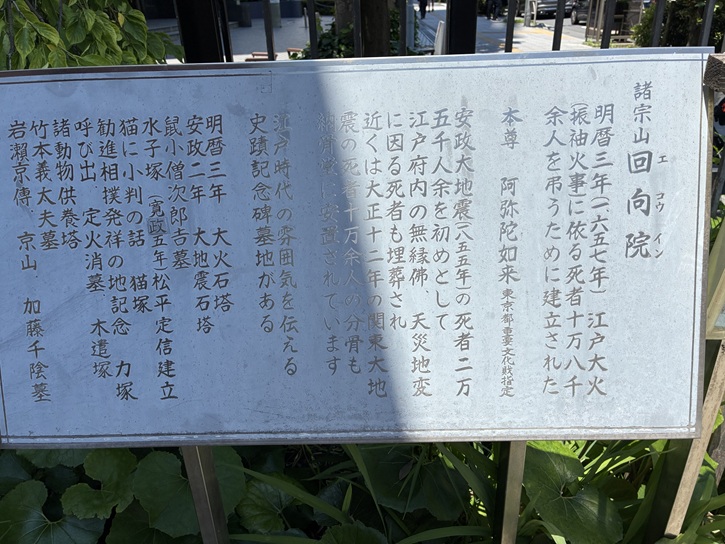 諸宗山 回向院
エコウイン
明暦三年(一六五七年) 江戸大火
(振袖火事に依る死者十万八千
余人を弔うために建立された
本尊 阿弥陀如来 東京都重要文化財指定
安政大地震(一八五五年)の死者二万
五千人余を初めとして
江戸府内の無縁佛、天災地変
に因る死者も埋葬され
近くは大正十二年の関東大地
震の死者十万余人の分骨も
納骨堂に安置されています
江戸時代の雰囲気を伝える
史蹟記念碑墓地がある
明暦三年 大火石塔
安政二年 大地震石塔
鼠小僧次郎吉墓
水子塚(寛政五年)松平定信建立
猫に小判の話 猫塚
勧進相撲発祥の地記念 力塚
呼び出 定火消墓 木遣塚
諸動物供養塔
竹本義太夫墓
岩瀬京傳、京山、加藤千陰墓